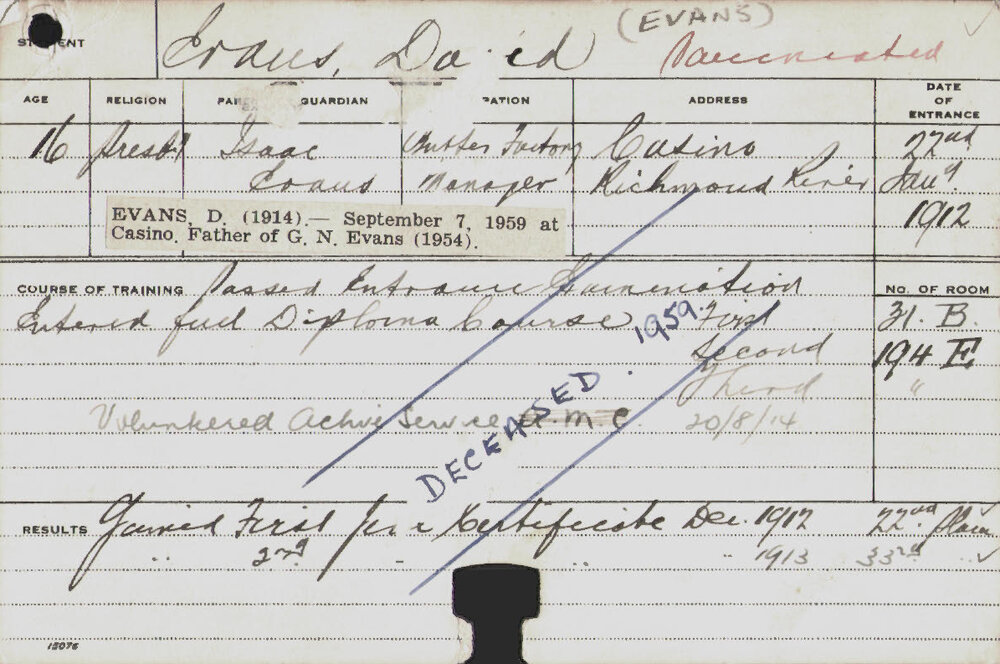 (EVANS)
STUDENT Evans, David Vaccinated
AGE RELIGION GUARDIAN ADDRESS DATE OF ENTRANCE
16 Presb. Isaac Butter Factory Casino 22nd
Evans Manager Richmond River Jany.
1912
EVANS, D. (1914).— September 7, 1959 at
Casino. Father of G. N. Evans (1954).
COURSE OF TRAINING Passed Entrance Examination No. OF ROOM
Entered full Diploma Course First 31. B.
Second 194 E
Third "
Volunteered Active Service A.M.C. 20/8/14
DECEASED. 1959.
RESULTS Gained First Year Certificate Dec. 1912 22nd Place
" 2nd " " 1913 33rd
15076